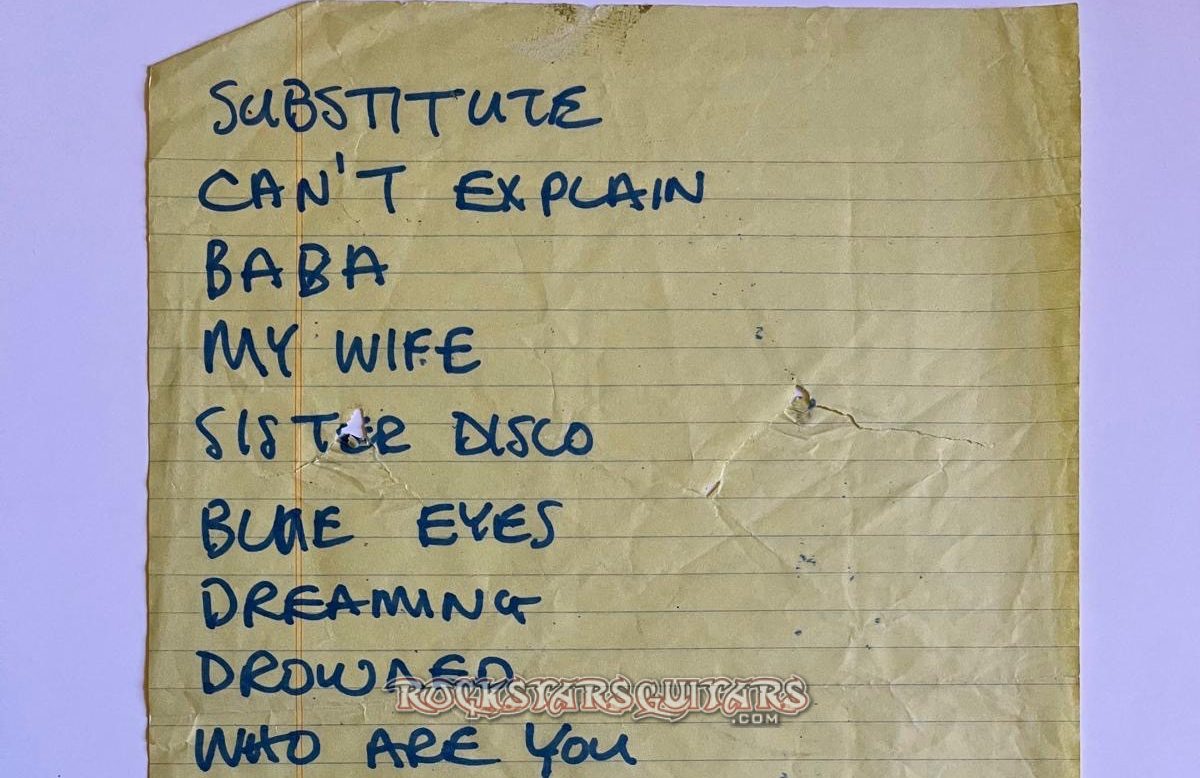 SUBSTITUTE
CAN'T EXPLAIN
BABA
MY WIFE
SISTER DISCO
BLUE EYES
DREAMING
DROWNED
ROCKSTARSGUITARS
.COM
WHO ARE YOU